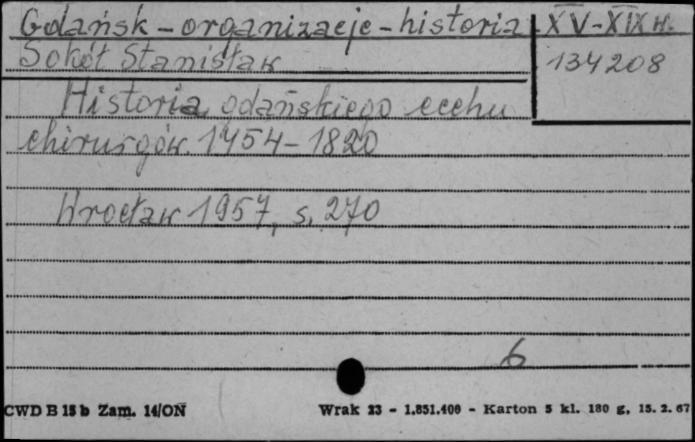 Gdańsk - organizacje - historia XV-XIX w.
Sokół Stanisław 134208
Historia gdańskiego cechu
chirurgów. 1454-1820
Wrocław 1957, s. 270
6
CWD B 15 b Zam. 14/ON Wrak 23 - 1.851.400 - Karton 5 kl. 180 g, 15. 2. 67